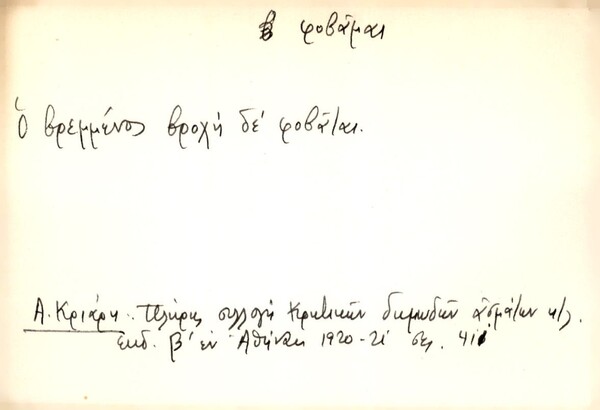 φοβᾶμαι
Ὁ βρεμμένος βροχὴ δὲ φοβᾶται.
Α. Κριάρη. Πλήρης συλλογὴ Κρητικῶν δημωδῶν ᾀσμάτων κτλ.
Ἐκδ. β' ἐν Ἀθήναις 1920-21 σελ. 41